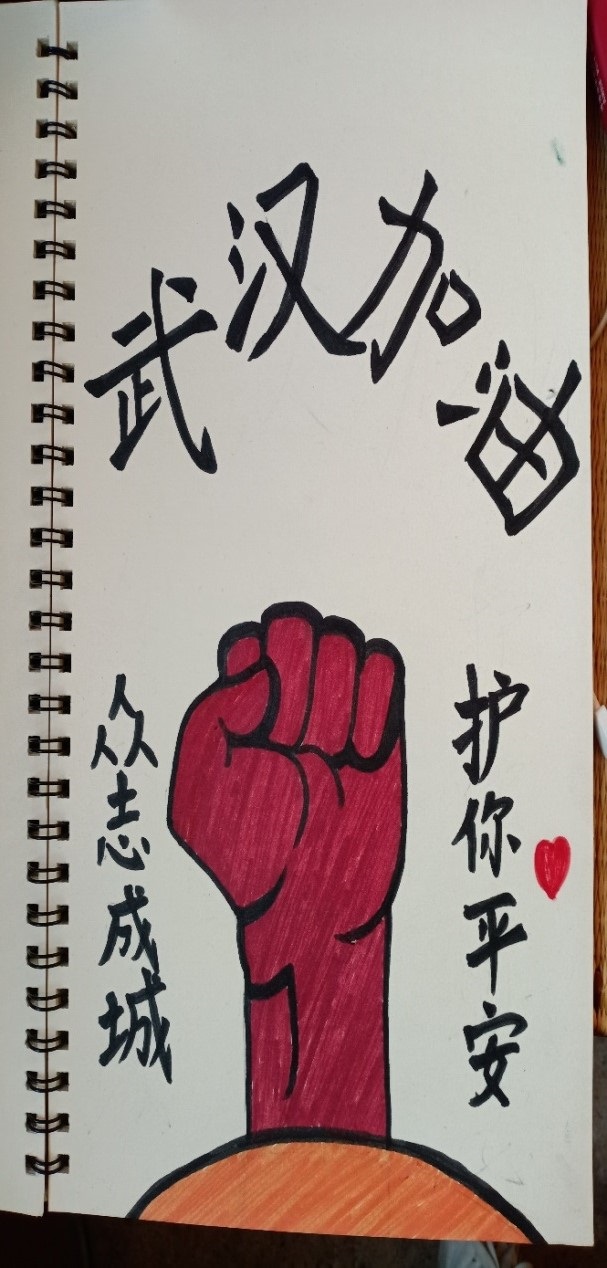 武汉加油
众志成城
护你平安